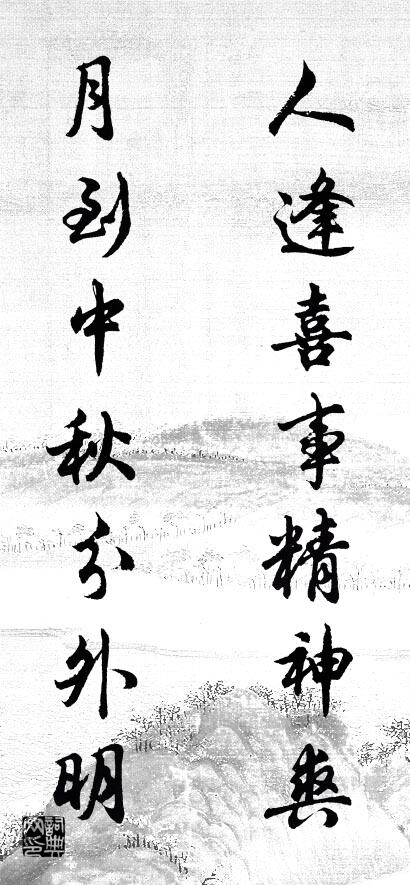 人逢喜事精神爽
月到中秋分外明